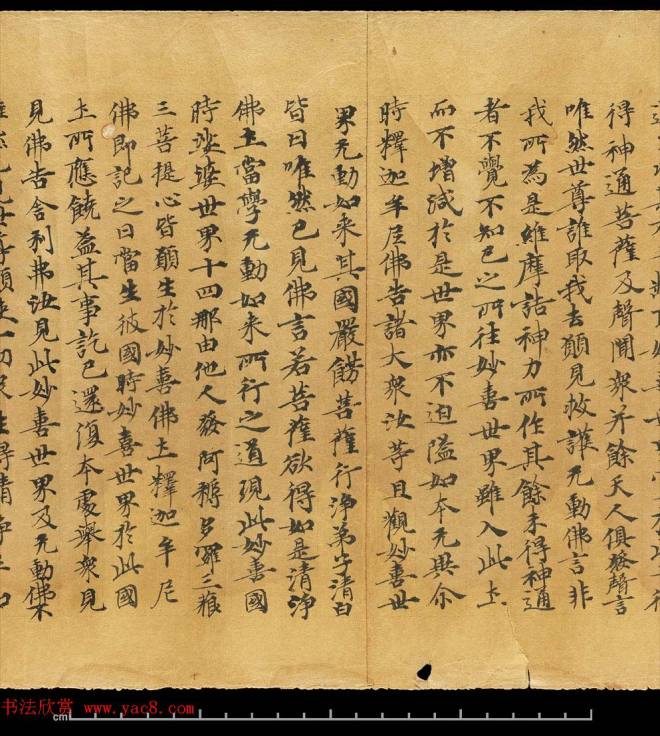 得神通菩薩及聲聞衆并餘天人俱發聲言
唯然世尊誰取我去願見救護无動佛言非
我所為是維摩詰神力所作其餘未得神通
者不覺不知己之所往妙喜世界雖入此土
而不增減於是世界亦不迫隘如本无異尒
時釋迦牟尼佛告諸大衆汝等且觀妙喜世
界无動如来其國嚴餝菩薩行淨弟子清白
皆曰唯然已見佛言若菩薩欲得如是清淨
佛土當學无動如来所行之道現此妙喜國
時娑婆世界十四那由他人發阿耨多羅三藐
三菩提心皆願生於妙喜佛土釋迦牟尼
佛即記之曰當生彼國時妙喜世界於此國
土所應饒益其事訖已還復本處舉衆見
見佛告舍利弗汝見此妙喜世界及无動佛不
书法欣赏
www.yac8.com
cm